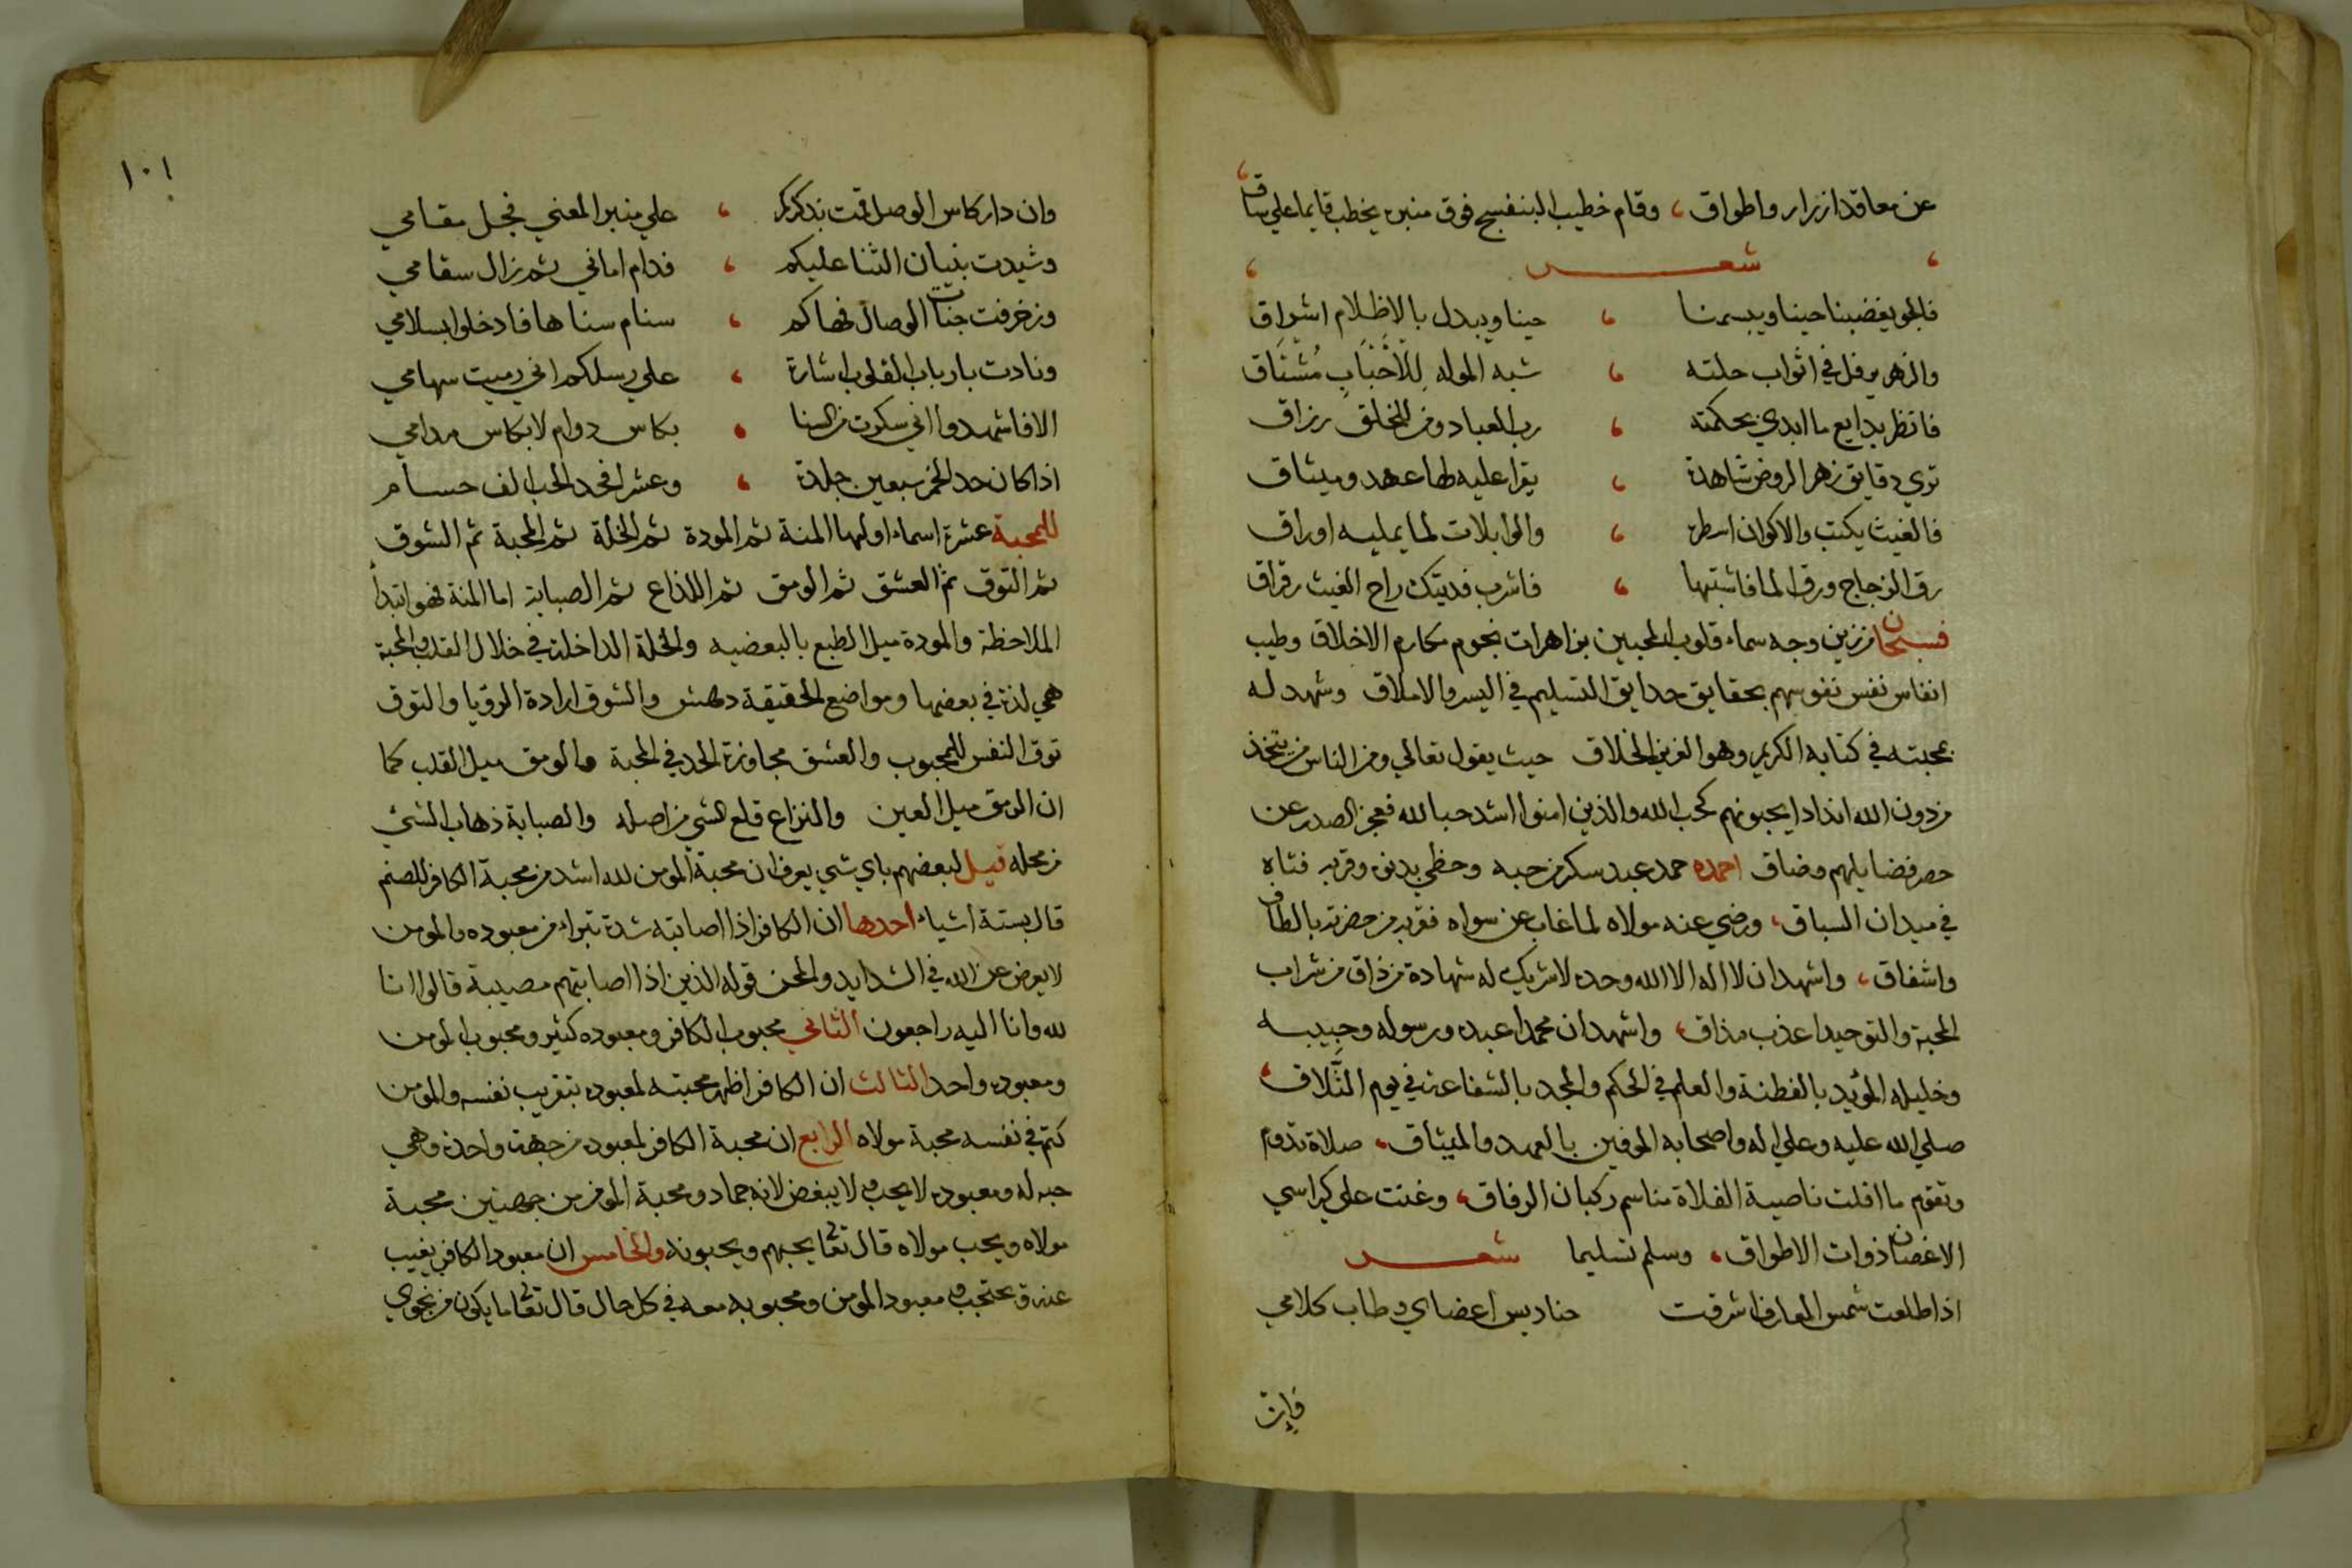 عن معاقد ازرار واطواق، وقام خطيب البنفسج فوق منبره يخطب قايما علي ساق
شعر
فالجو يغضبنا حينا ويبسمنا ، حينا ويبدل بالاظلام اشراق
والزهر يرفل في اثواب حلته ، شبه الموله للاحباب مشتاق
فانظر بدايع ما ابدي بحكمته ، رب العباد ومن للخلق رزاق
تري دقايق زهر الروض شاهدة ، يقرا عليه لها عهد وميثاق
فالغيث يكتب والاكوان اسطره ، والوابلات لما يمليه اوراق
رق الزجاج ورق الما فاشتبها ، فاشرب فديتك راح الغيث رقراق
فسبحان من زين وجه سماء قلوب المحبين بزاهرات نجوم مكارم الاخلاق وطيب
انفاس نفس نفوسهم بحقايق حدايق التسليم في اليسر والاملاق وشهد له
بمحبته في كتابه الكريم وهو العزيز الخلاق حيث يقول تعالي ومن الناس من يتخذ
من دون الله اندادا يحبونهم كحب الله والذين امنوا اشد حبا لله فعجز الصدر عن
حصر فضايلهم وضاق احمده حمد عبد سكر من حبه وحظي بدنوه وقربه فتاه
في ميدان السباق، ورضي عنه مولاه لما غاب عن سواه فقربه من حضرته بالطاف
واشفاق، واشهد ان لا اله الا الله وحده لا شريك له شهادة من ذاق من شراب
المحبة والتوحيد اعذب مذاق، واشهد ان محمدا عبده ورسوله وحبيبه
وخليله المؤيد بالفطنة والعلم في الحكم والمجد بالشفاعة في يوم التلاق،
صلي الله عليه وعلي اله واصحابه الموفين بالعهد والميثاق، صلاة تدوم
وتقوم ما افلت ناصية الفلاة مناسم ركبان الرفاق، وغنت علي كراسي
الاغصان ذوات الاطواق، وسلم تسليما شعر
اذا طلعت شمس المعارف اشرقت حناديس اعضاي وطاب كلامي
فإن
١٠١
وان دار كاس الوصل قمت بذكركم ، علي منبر المعني فجل مقامي
وشيدت بنيان الثنا عليكم ، فدام اماني ثم زال سقامي
وزخرفت جنات الوصال فهاكم ، سنام سناها فادخلوا بسلامي
ونادت بارباب القلوب اشارة ، علي رسلكم اني رميت سهامي
الا فاشهدوا اني سكرت من السنا ، بكاس دوام لا بكاس مدامي
اذا كان حد الخمر سبعين جلدة ، وعشرا فحد الحب الف حسام
للمحبة عشرة اسماء اولها المنة ثم المودة ثم الخلة ثم المحبة ثم الشوق
ثم التوق ثم العشق ثم الومق ثم اللذاع ثم الصبابة اما المنة فهو ابتدا
الملاحظة والمودة ميل الطبع بالبعضيه والخلة الداخلة في خلال القلب والمحبة
هي لذة في بعضها ومواضع الحقيقة دهش والشوق ارادة الرؤيا والتوق
توق النفس للمحبوب والعشق مجاوزة الحد في المحبة والومق ميل القلب كما
ان الرمق ميل العين والنزاع قلع الشي من اصله والصبابة ذهاب الشئ
من محله قيل لبعضهم باي شي يعرف ان محبة المومن لله اشد من محبة الكافر للصنم
قال بستة اشياء احدها ان الكافر اذا اصابته شدة تبراء من معبوده والمومن
لا يعرض عن الله في الشدايد والمحن قوله الذين اذا اصابتهم مصيبة قالوا انا
لله وانا اليه راجعون الثاني محبوب الكافر ومعبوده كثير ومحبوب المومن
ومعبوده واحد الثالث ان الكافر اظهر محبته لمعبوده بتقريب نفسه والمومن
كتم في نفسه محبة مولاه الرابع ان محبة الكافر لمعبوده من جهة واحدة وهي
حبه له ومعبوده لا يحب ولا يبغض لانه جماد ومحبة المومن من جهتين محبة
مولاه ويحب مولاه قال تعا يحبهم ويحبونه والخامس ان معبود الكافر يغيب
عنه ويحتجب ومعبود المومن ومحبوبه معه في كل حال قال تعا ما يكون من نجوي